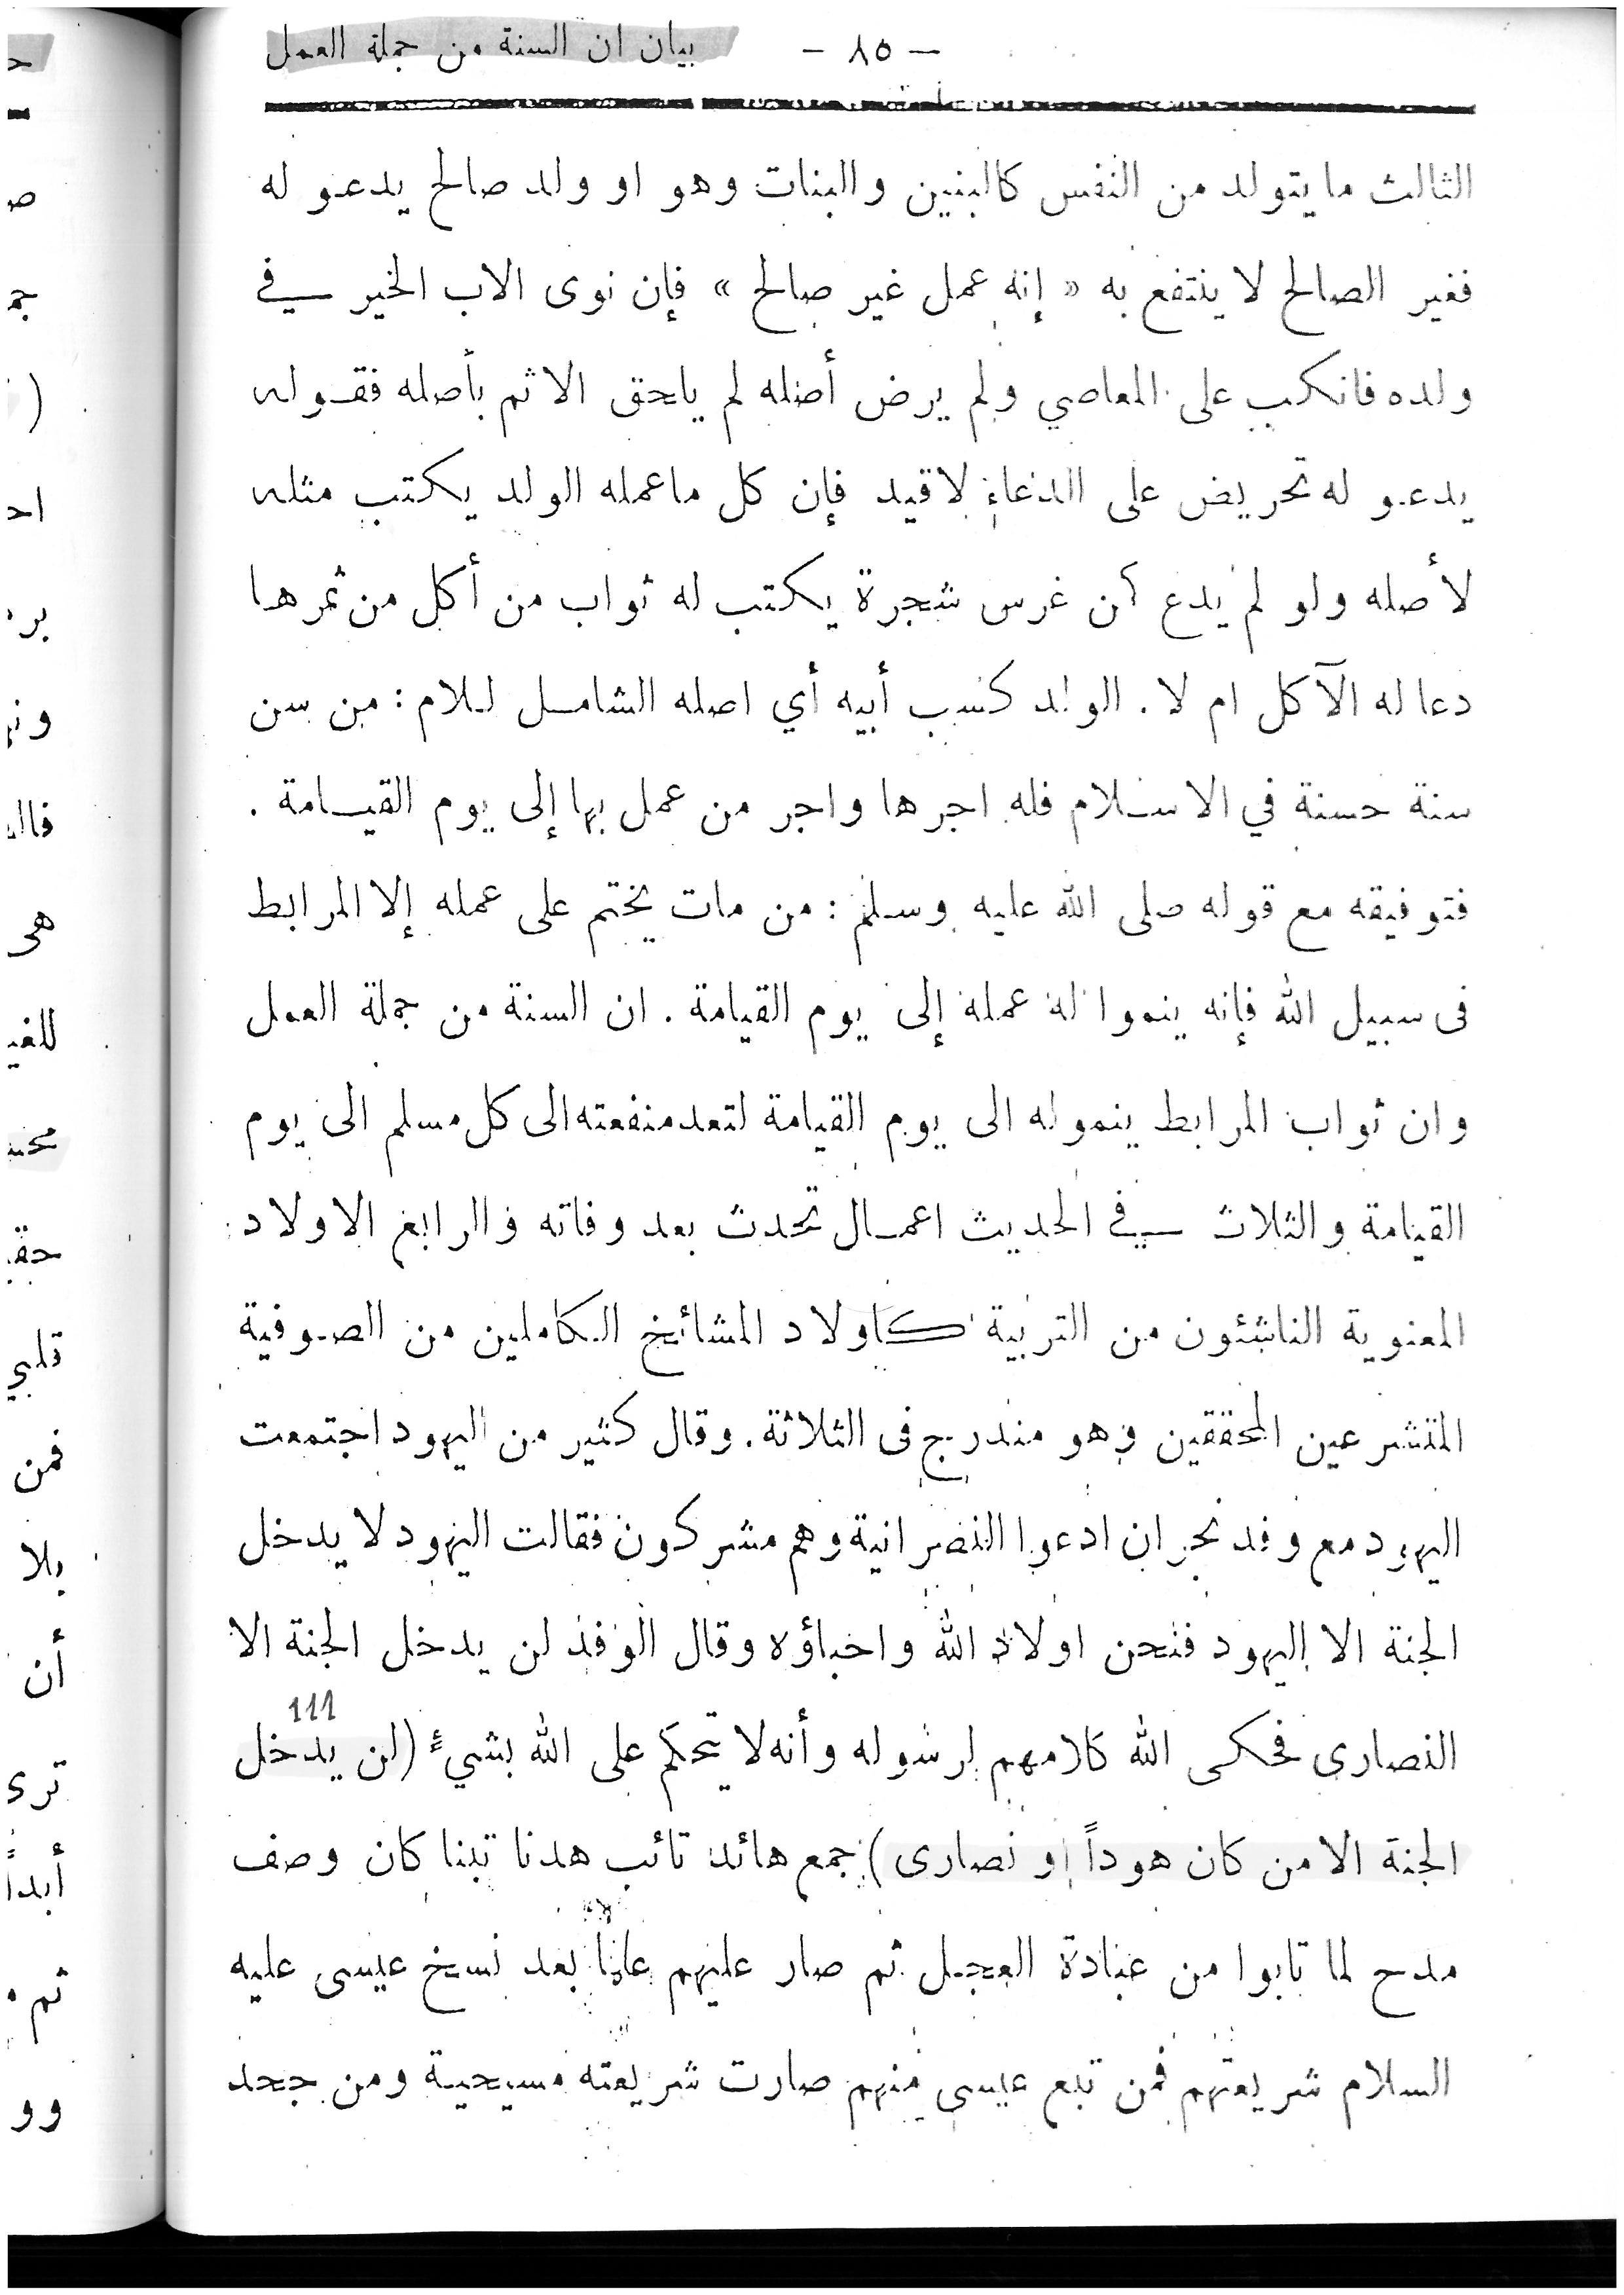 بيان ان السنة من جملة العمل - ٨٥ -
الثالث ما يتولد من النفس كالبنين والبنات وهو او ولد صالح يدعو له
فغير الصالح لا ينتفع به « إنه عمل غير صالح » فإن نوى الاب الخير في
ولده فانكب على المعاصي ولم يرض أصله لم يلحق الاثم بأصله فقوله
يدعو له تحريض على الدعاء لا قيد فإن كل ما عمله الولد يكتب مثله
لأصله ولو لم يدع كمن غرس شجرة يكتب له ثواب من أكل من ثمرها
دعا له الآكل ام لا . الولد كسب أبيه أي اصله الشامل للام : من سن
سنة حسنة في الاسلام فله اجرها واجر من عمل بها إلى يوم القيامة .
فتوفيقه مع قوله صلى الله عليه وسلم : من مات يختم على عمله إلا المرابط
فى سبيل الله فإنه ينموا له عمله إلى يوم القيامة . ان السنة من جملة العمل
وان ثواب المرابط ينمو له الى يوم القيامة لتعد منفعته الى كل مسلم الى يوم
القيامة والثلاث في الحديث اعمال تحدث بعد وفاته والرابع الاولاد
المعنوية الناشئون من التربية كاولاد المشائخ الكاملين من الصوفية
المتشرعين المحققين وهو مندرج فى الثلاثة . وقال كثير من اليهود اجتمعت
اليهود مع وفد نجران ادعوا النصرانية وهم مشركون فقالت اليهود لا يدخل
الجنة الا اليهود فنحن اولاد الله واحباؤه وقال الوفد لن يدخل الجنة الا
111
النصارى فحكى الله كلامهم لرسوله وأنه لا يتحكم على الله بشيء (لن يدخل
الجنة الا من كان هوداً او نصارى) جمع هائد تائب هدنا تبنا كان وصف
مدح لما تابوا من عبادة العجل ثم صار عليهم علما بعد نسخ عيسى عليه
السلام شريعتهم فمن تبع عيسى منهم صارت شريعته مسيحية ومن جحد